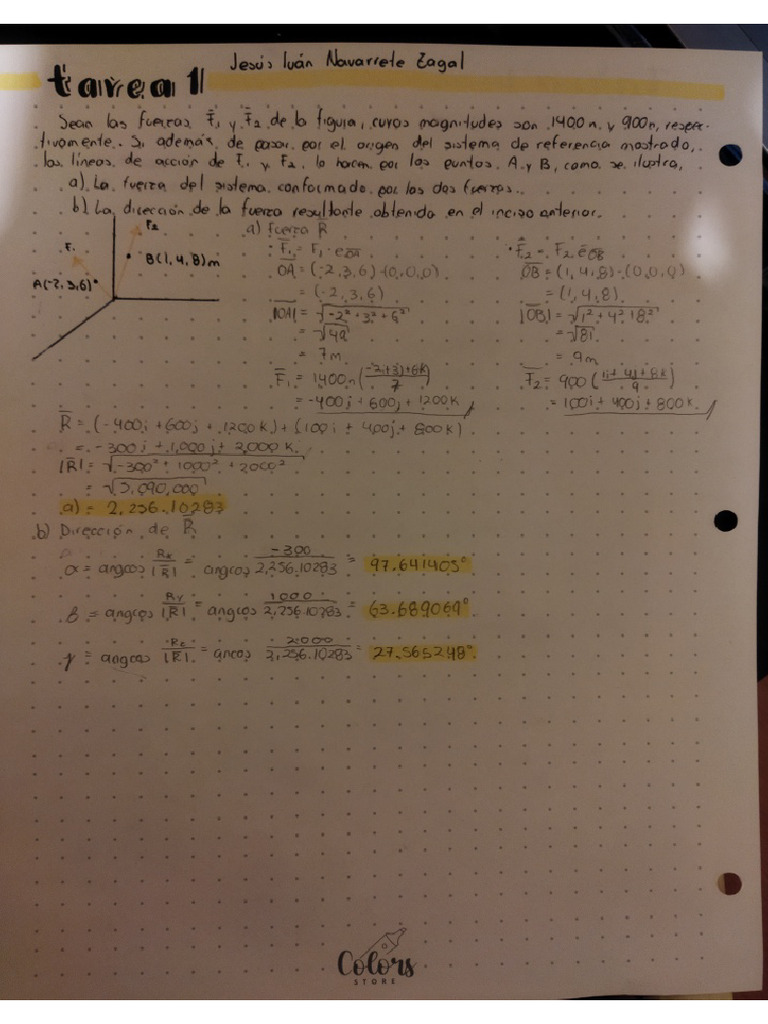 Jesús Iván Navarrete Zagal
tarea 1
Sean las fuerzas F̄₁ y F̄₂ de la figura, cuyas magnitudes son 1400 n y 900 n, respec-
tivamente. Si además de pasar por el origen del sistema de referencia mostrado,
las líneas de acción de F₁ y F₂ lo hacen por los puntos A y B, como se ilustra,
a) La fuerza del sistema conformado por las dos fuerzas.
b) La dirección de la fuerza resultante obtenida en el inciso anterior.
F₂
F₁
B(1, 4, 8)m
A(-2,3,6)
a) fuerza R̄
F̄₁ = F₁ · e OA
OA = (-2, 3, 6) - (0, 0, 0)
= (-2, 3, 6)
|OA| = √-2² + 3² + 6²
= √49
= 7m
F̄₁ = 1400n (-2i+3j+6k / 7)
= -400i + 600j + 1200k
F̄₂ = F₂ · ē OB
OB = (1, 4, 8) - (0, 0, 0)
= (1, 4, 8)
|OB| = √1² + 4² + 8²
= √81
= 9m
F₂ = 900 (1i + 4j + 8k / 9)
= 100i + 400j + 800k
R̄ = (-400i + 600j + 1200k) + (100i + 400j + 800k)
= -300i + 1,000j + 2,000k
|R̄| = √-300² + 1000² + 2000²
= √5,090,000
a) = 2,256.10283
b) Dirección de R̄
α = angcos Rx / |R̄| = angcos -300 / 2,256.10283 = 97.641405°
β = angcos Ry / |R̄| = angcos 1000 / 2,256.10283 = 63.689069°
γ = angcos Rz / |R̄| = ancos 2000 / 2,256.10283 = 27.565248°
Colors
STORE